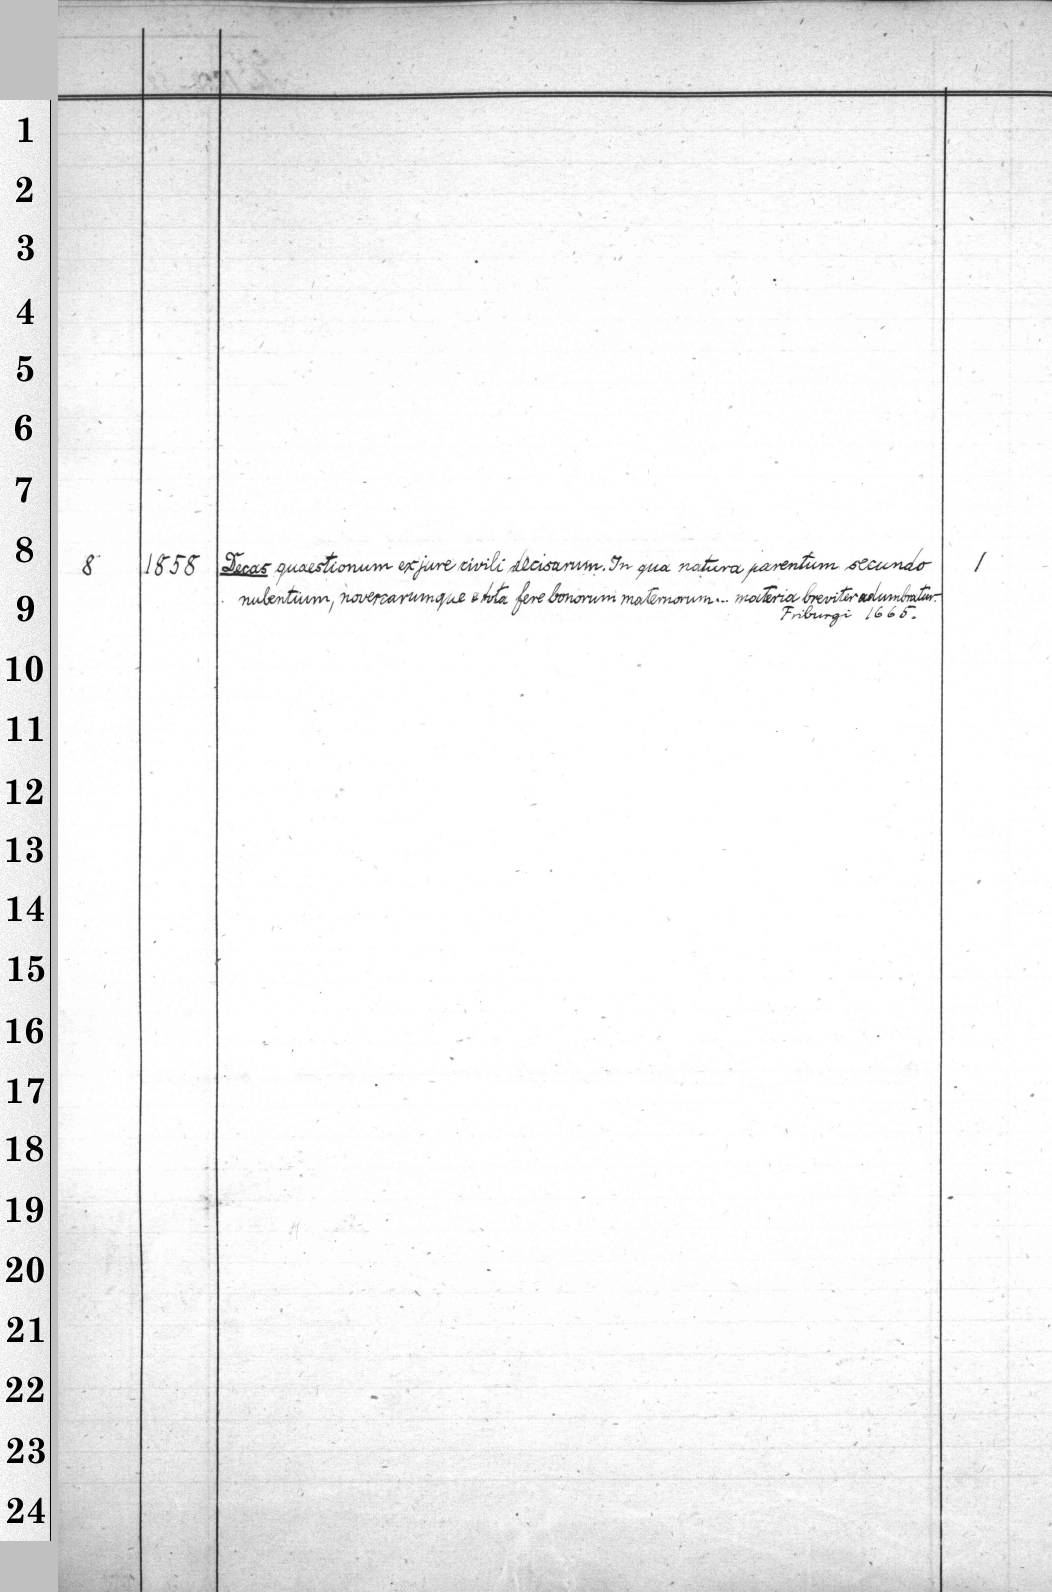 1
2
3
4
5
6
7
8
8 1858 Decas quaestionum ex jure civili decisarum. In qua natura parentum secundo 1
9
nubentium, novercarumque & tota fere bonorum maternorum... materia breviter adumbratur.
Friburgi 1665.
10
11
12
13
14
15
16
17
18
19
20
21
22
23
24